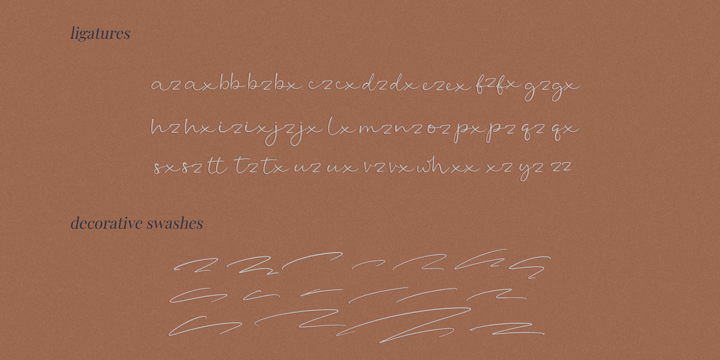 ligatures
az ax bb bz bx cz cx dz dx ez ex fz fx gz gx
hz hx iz ix jz jx lx mz nz oz px pz qz qx
sx sz tt tz tx uz ux vz vx wh xx xz yz zz
decorative swashes